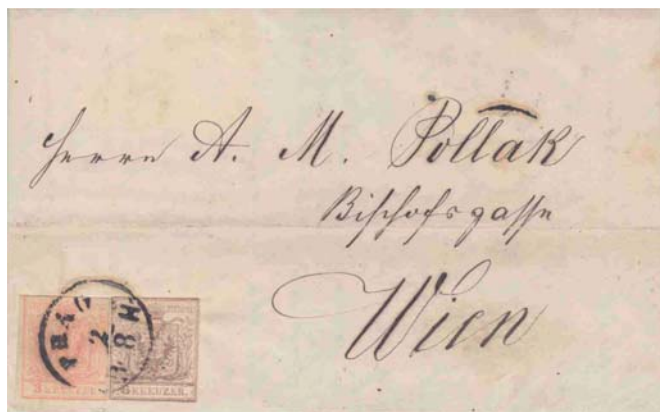 Herrn A. M. Pollak
Bischofsgasse
Wien
PRAG
2
8 H
KREUZER
KREUZER.